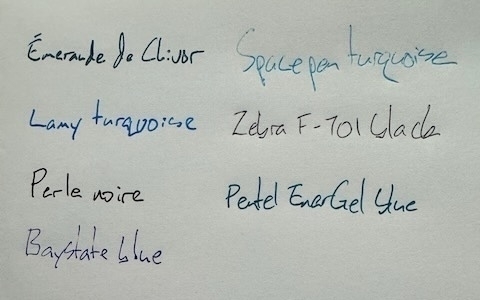 Émeraude de Chivor
Lamy turquoise
Perle noire
Baystate blue
Space pen turquoise
Zebra F-701 black
Pentel EnerGel blue